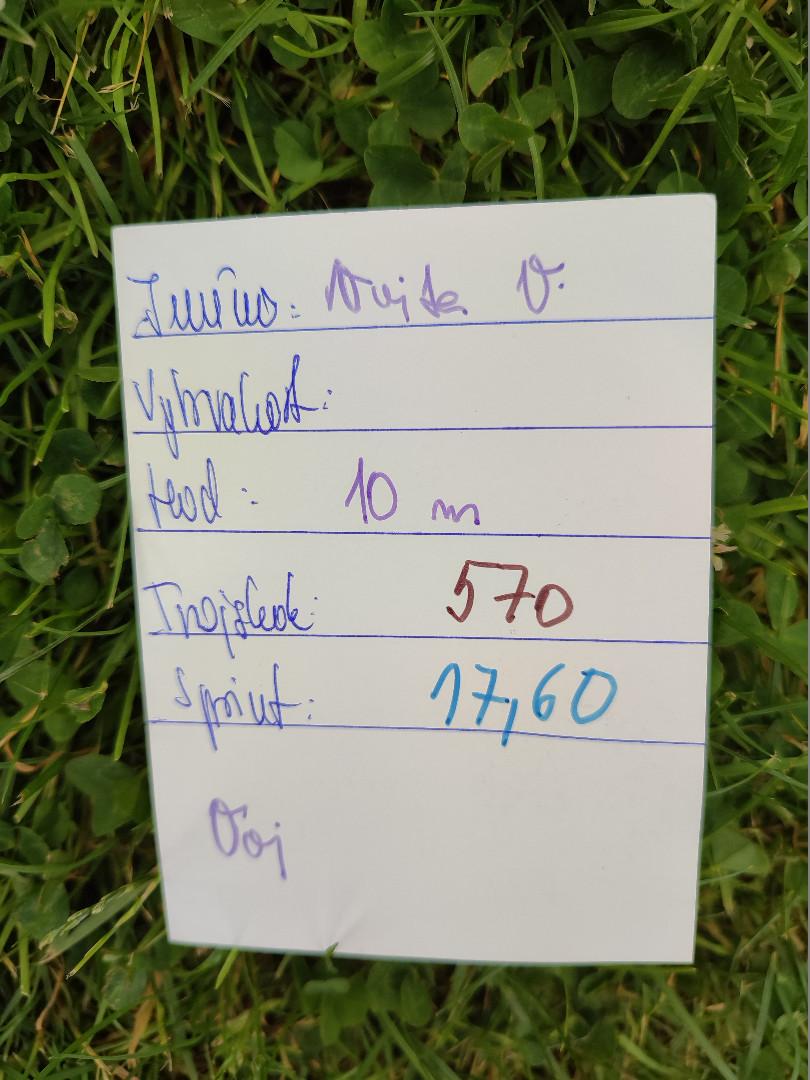 Jméno: Vojta V.
Vytrvalost:
Hod: 10 m
Trojskok: 570
Sprint: 17,60
Voj